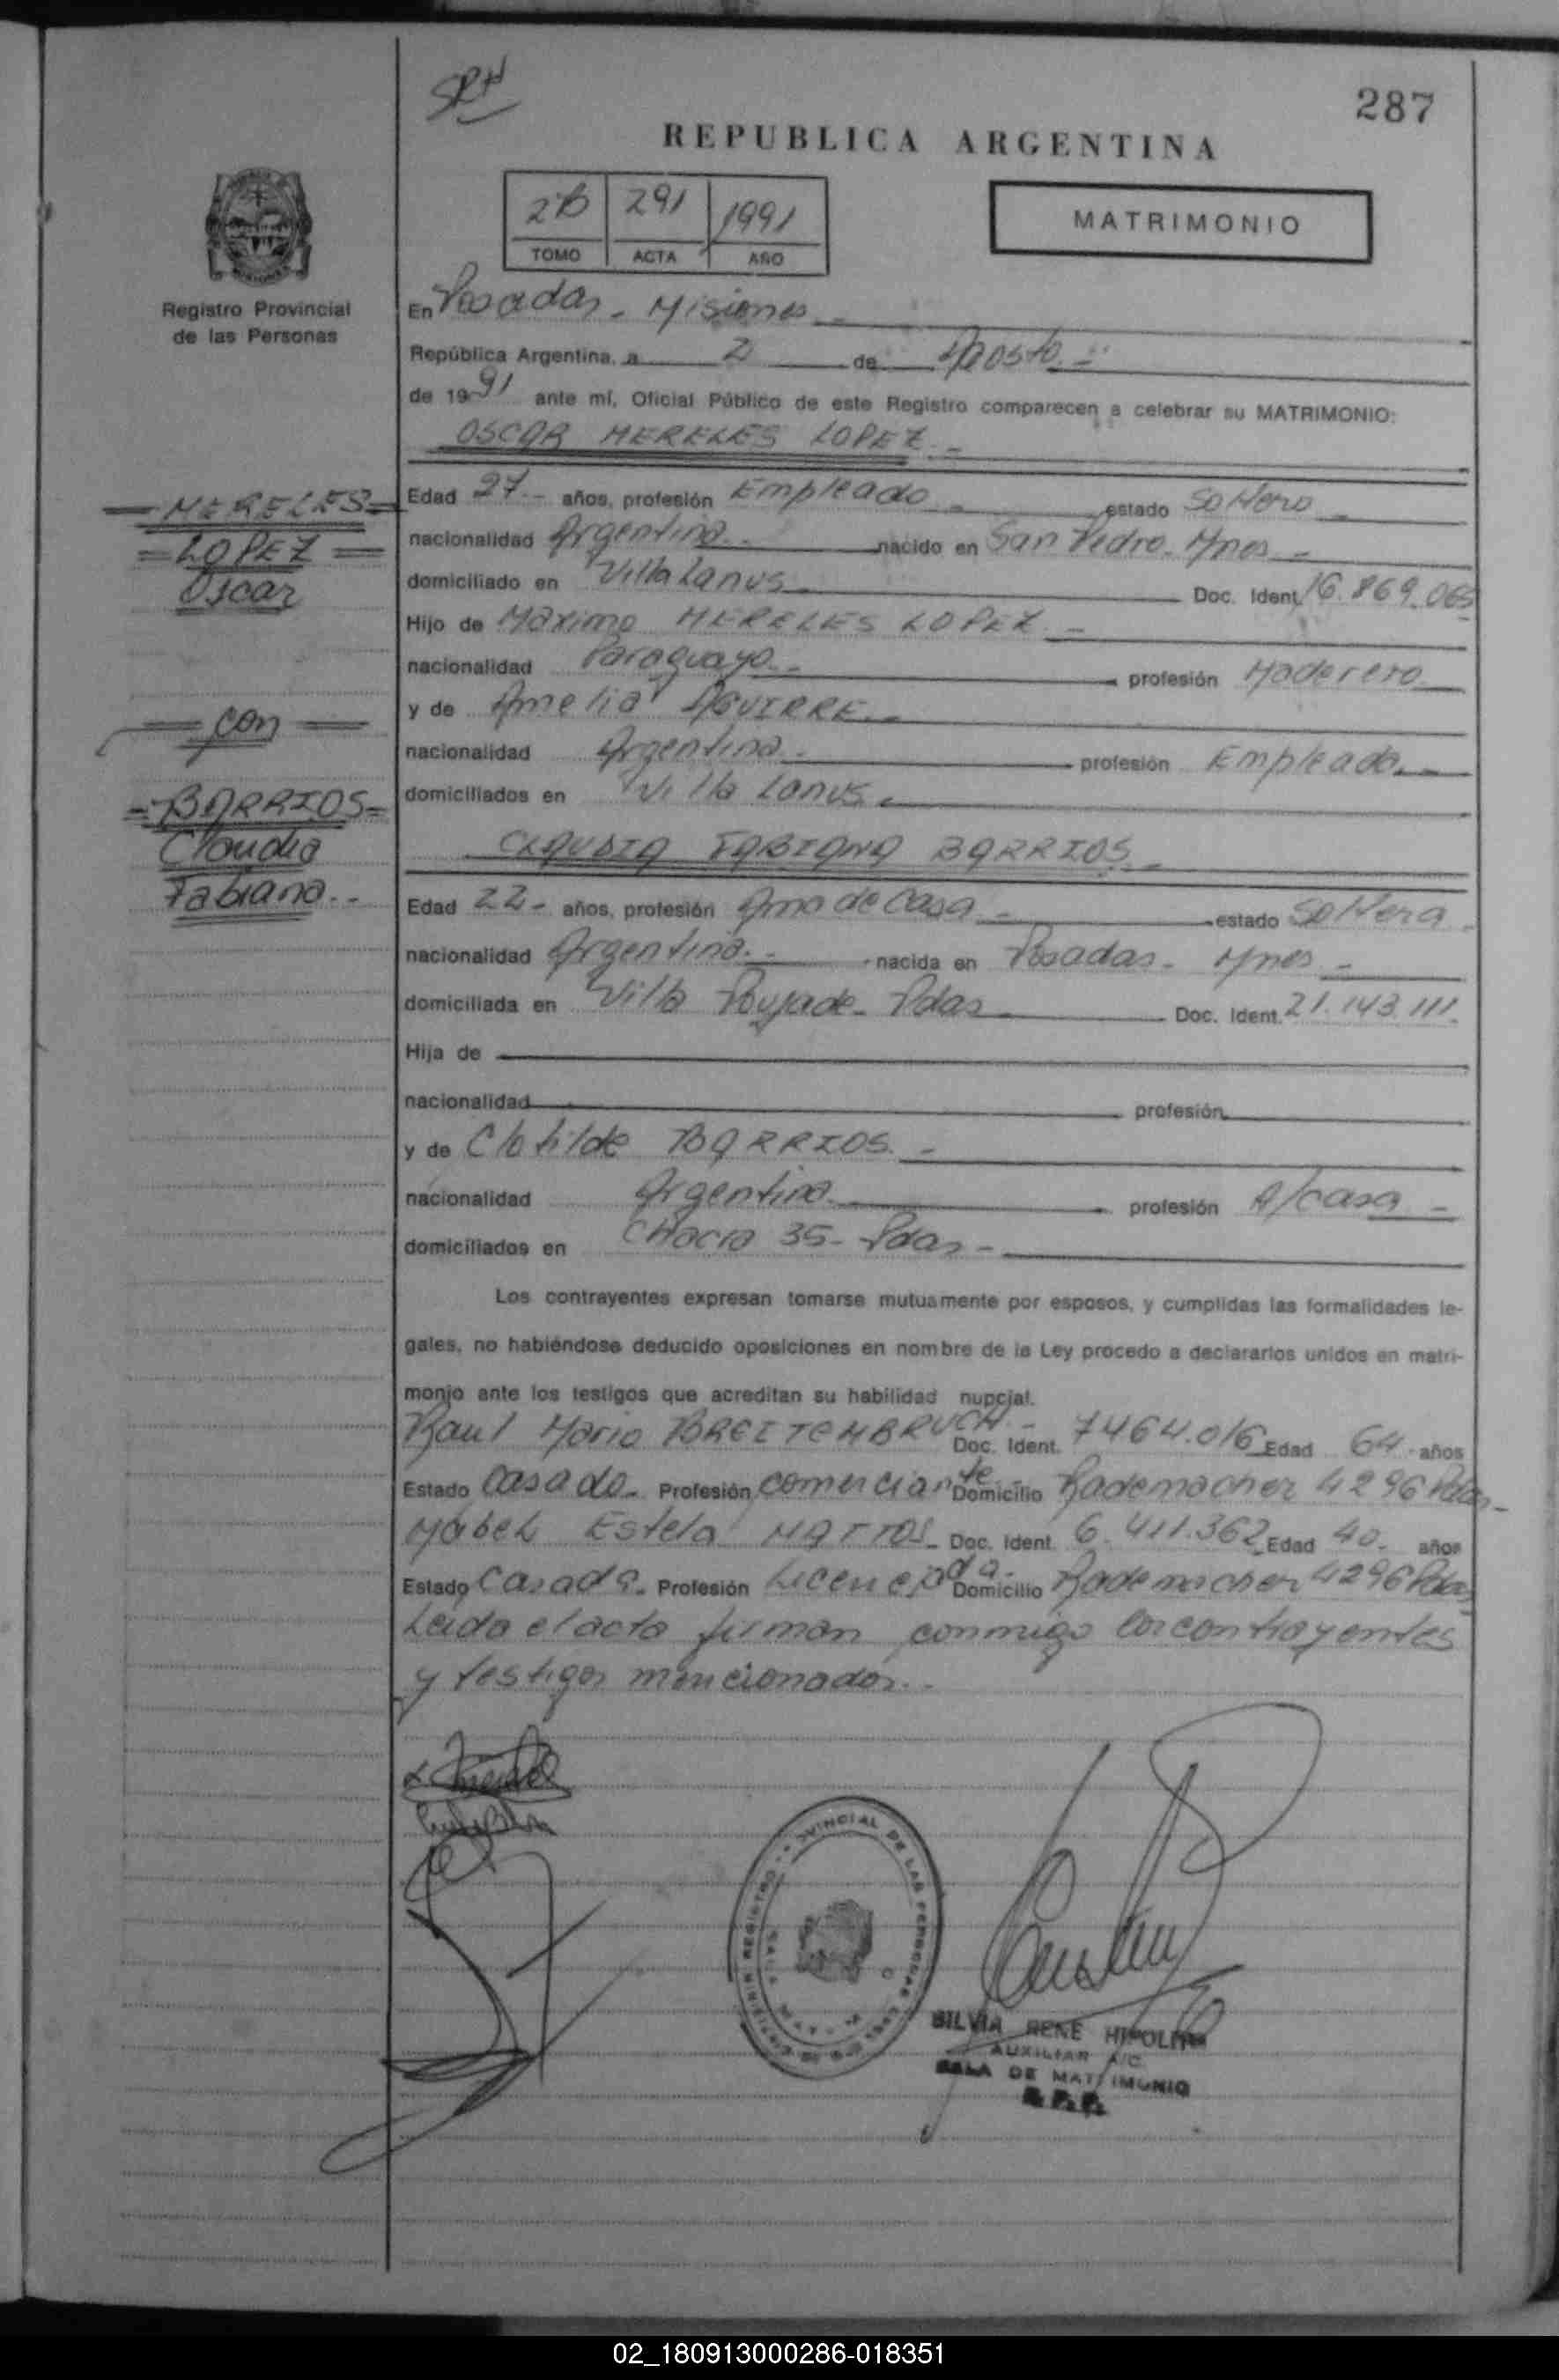 287
REPUBLICA ARGENTINA
2B 291 1991
TOMO ACTA AÑO
MATRIMONIO
Registro Provincial
de las Personas
En Posadas - Misiones
República Argentina, a 2 de Agosto.-
de 1991 ante mí, Oficial Público de este Registro comparecen a celebrar su MATRIMONIO:
OSCAR MERELES LOPEZ.-
=MERELES=
=LOPEZ=
Oscar
= con =
=BARRIOS=
Claudia
Fabiana.-
Edad 27.- años, profesión Empleado - estado Soltero -
nacionalidad Argentina.- nacido en San Pedro - Mnes -
domiciliado en Villa Lanus Doc. Ident. 16.869.065
Hijo de Máximo MERELES LOPEZ -
nacionalidad Paraguaya.- profesión Maderero
y de Amelia AGUIRRE.-
nacionalidad Argentina.- profesión Empleada.-
domiciliados en Villa Lanus.-
CLAUDIA FABIANA BARRIOS -
Edad 22- años, profesión Ama de Casa - estado Soltera -
nacionalidad Argentina.- nacida en Posadas - Mnes -
domiciliada en Villa Poujade - Pdas Doc. Ident. 21.143.111.
Hija de
nacionalidad profesión
y de Clotilde BARRIOS.-
nacionalidad Argentina profesión A/casa -
domiciliados en Chacra 35- Pdas -
Los contrayentes expresan tomarse mutuamente por esposos, y cumplidas las formalidades le-
gales, no habiéndose deducido oposiciones en nombre de la Ley procedo a declararlos unidos en matri-
monio ante los testigos que acreditan su habilidad nupcial.
Raul Mario BREITEMBRUCH.- Doc. Ident. 7464.016 Edad 64 años
Estado Casado - Profesión comerciante Domicilio Rademacher 4296 Pdas -
Mabel Estela MATTOS - Doc. Ident. 6.411.362 Edad 40.- años
Estado Casada - Profesión Licenciada.- Domicilio Rademacher 4296 Pdas
Leida el acta firman conmigo los contrayentes
y testigos mencionados.-
SILVIA RENE HIPOLITO
AUXILIAR A/C
SALA DE MATRIMONIO
02_180913000286-018351